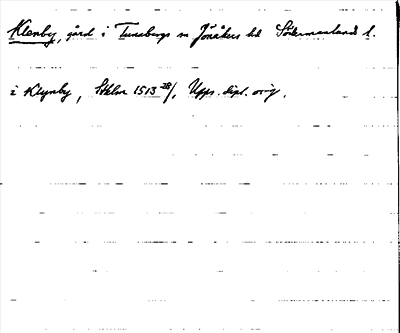 Klenby, gård i Tunabergs sn Jönåkers hd Södermanlands l.
i Klynby, Sthlm 1513 28/1, Upps. dipl. orig.